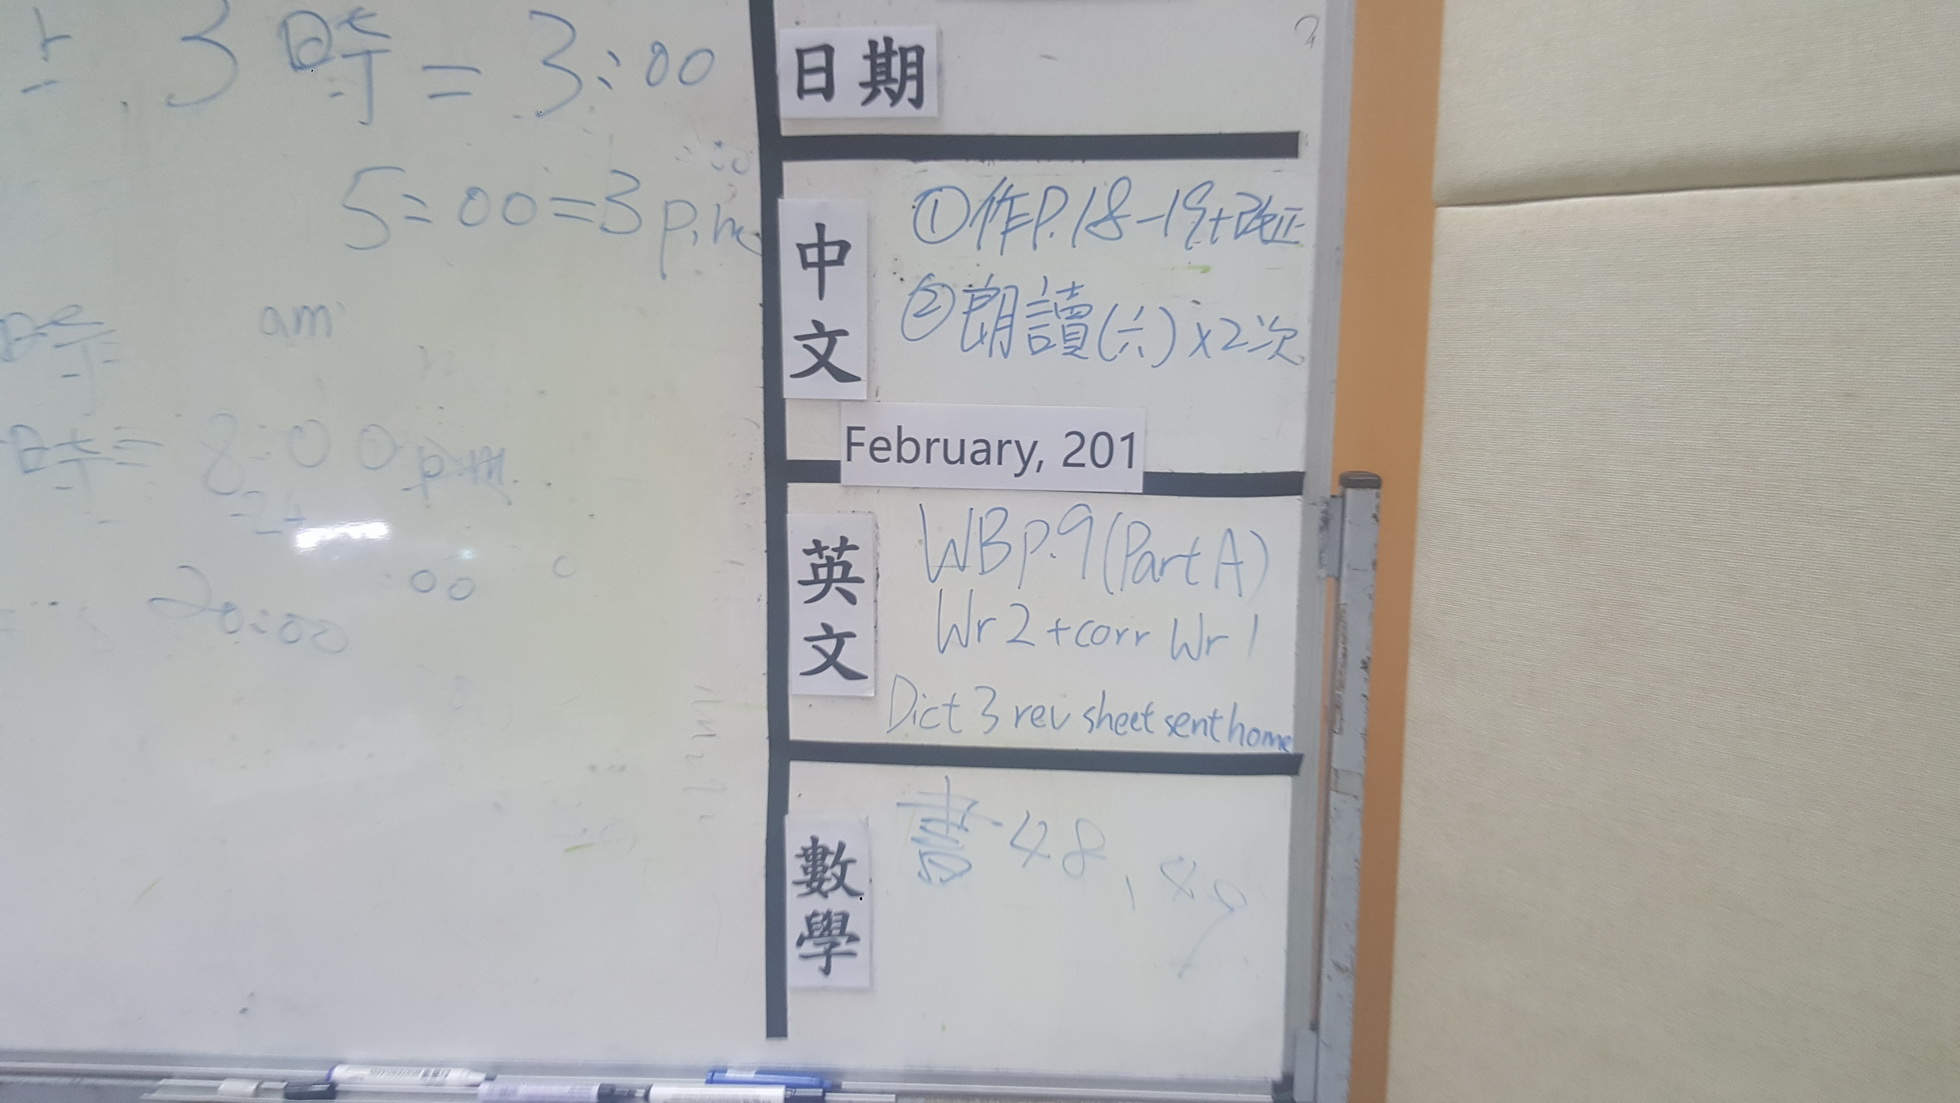 3時=3:00
5=00=3p.m
時
am
時=8:00pm
20:00
:00
日期
中文
①作P.18-19+改正
②朗讀(六)x2次
February, 201
英文
WBp.9(Part A)
Wr2+corr Wr1
Dict 3 rev sheet sent home
數學
書48,49